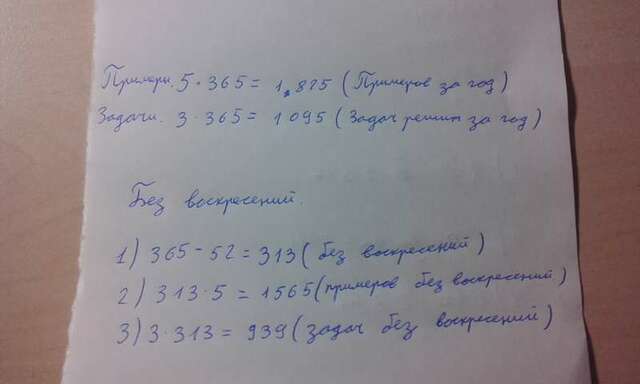 Примеры 5·365 = 1825 (Примеров за год)
Задачи. 3·365 = 1095 (Задач решит за год)
Без воскресений.
1) 365 - 52 = 313 (без воскресений)
2) 313·5 = 1565 (примеров без воскресений)
3) 3·313 = 939 (задач без воскресений)